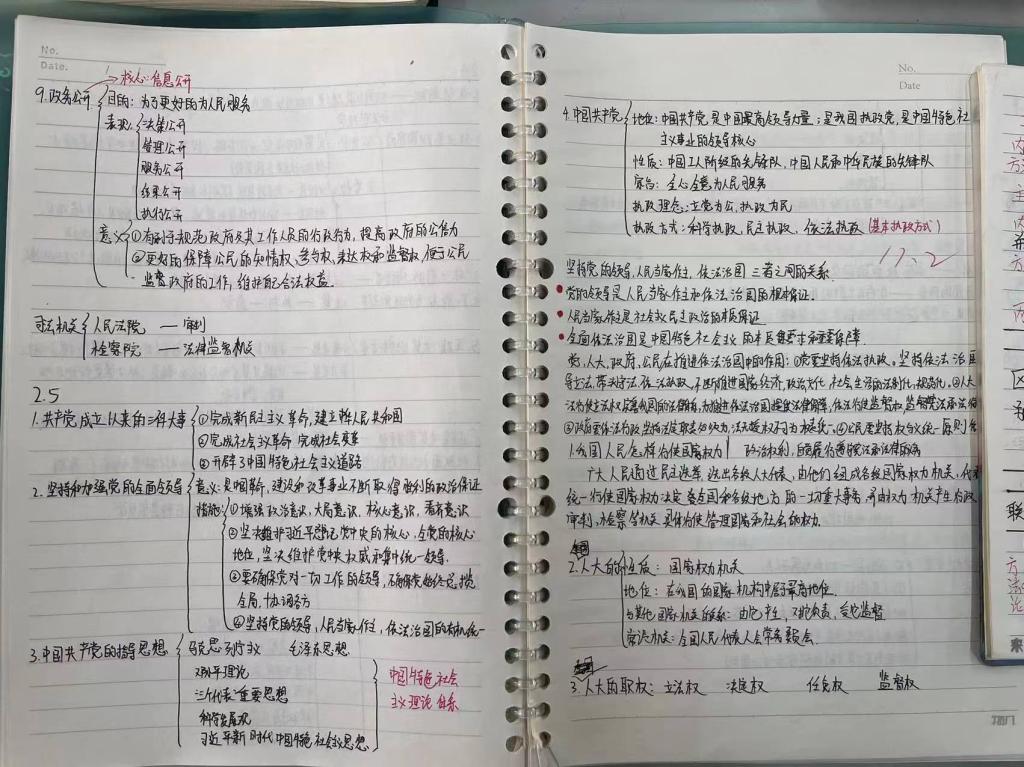 No.
Date.
核心:信息公开
9.政务公开
目的:为了更好的为人民服务
表现
决策公开
管理公开
服务公开
结果公开
执行公开
意义
①有利于规范政府及其工作人员的行政行为,提高政府的公信力
②更好的保障公民的知情权、参与权、表达权和监督权,便于公民
监督政府的工作,维护自己合法权益.
司法机关
人民法院 — 审判
检察院 — 法律监督机关
2.5
1.共产党成立以来的三件大事
①完成新民主主义革命,建立中华人民共和国
②完成社会主义革命 完成社会变革
③开辟了中国特色社会主义道路
2.坚持和加强党的全面领导
意义:是中国革命,建设和改革事业不断取得胜利的政治保证
措施:①增强政治意识,大局意识,核心意识,看齐意识
②坚决维护习近平总书记党中央的核心,全党的核心
地位,坚决维护党中央权威和集中统一领导.
③要确保党对一切工作的领导,确保党始终总揽
全局,协调各方
④坚持党的领导,人民当家作主,依法治国的有机统一
3.中国共产党的指导思想
马克思列宁主义 毛泽东思想
邓小平理论
"三个代表"重要思想
科学发展观
习近平新时代中国特色社会主义思想
中国特色社会
主义理论体系
No.
Date
4.中国共产党
地位:中国共产党是中国最高领导力量;是我国执政党,是中国特色社
主义事业的领导核心
性质:中国工人阶级的先锋队,中国人民和中华民族的先锋队
宗旨:全心全意为人民服务
执政理念:立党为公,执政为民
执政方式:科学执政,民主执政,依法执政(基本执政方式)
17、2
坚持党的领导,人民当家作主,依法治国 三者之间的关系
党的领导是人民当家作主和依法治国的根本保证.
人民当家作主是社会主义民主政治的本质保证
全面依法治国是中国特色社会主义的本质要求和重要保障.
党,人大,政府,公民在推进依法治国中的作用:①党要坚持依法执政。坚持依法治国
领导立法,带头守法,依法执政,不断推进国家经济,政治文化,社会生活的法制化,规范化。②人大
③政府要依法行政,坚持法定职责必须为,法无授权不可为
④公民要坚持权利义务统一原则
1.我国人民怎样行使国家权力
政治权利,自觉履行遵守宪法和法律
广大人民通过民主选举,选出各级人大代表,由他们组成各级国家权力机关,代表
统一行使国家权力决定着全国和各级地方的一切重大事务,并由权力机关产生行政
审判,检察等机关具体行使管理国家和社会的权力.
2.人大的
性质:国家权力机关
地位:在我国的国家机构中居于最高地位.
与其他国家机关的关系:由它产生,对它负责,受它监督
常设机关:全国人民代表大会常务委员会.
3.人大的职权:立法权 决定权 任免权 监督权
内
方
主
内
区
联
方
法
论